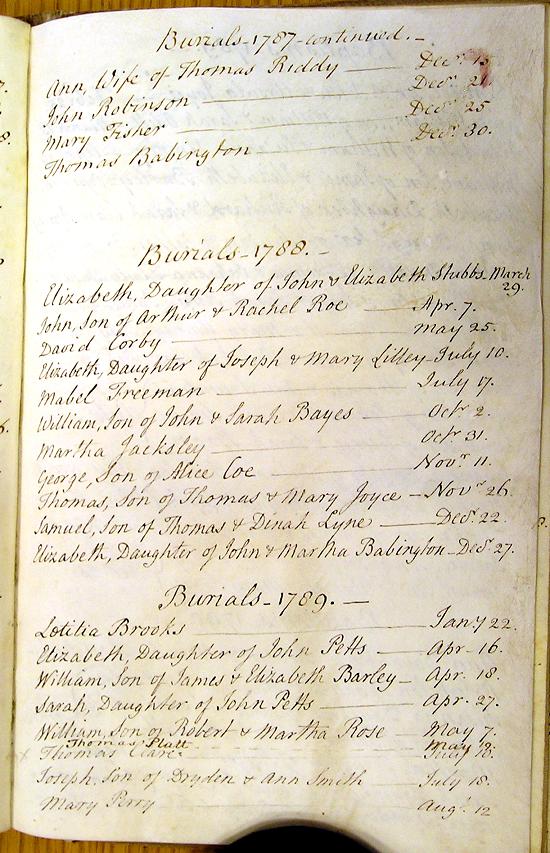 Burials-1787-continued.-
Ann, Wife of Thomas Riddy — Decr.
John Robinson — Decr.
Mary Fisher — Decr. 25
Thomas Babington — Decr. 30.
Burials-1788.-
Elizabeth, Daughter of John & Elizabeth Stubbs. March 29.
John, Son of Arthur & Rachel Roe — Apr. 7.
David Corby — May 25.
Elizabeth, Daughter of Joseph & Mary Lilley-July 10.
Mabel Freeman — July 17.
William, Son of John & Sarah Bayes — Octr. 2.
Martha Jacksley — Octr. 31.
George, Son of Alice Coe — Novr. 11.
Thomas, Son of Thomas & Mary Joyce — Novr. 26.
Samuel, Son of Thomas & Dinah Lyne — Decr. 22.
Elizabeth, Daughter of John & Martha Babington-Decr. 27.
Burials-1789.—
Lætitia Brooks — Jany 22.
Elizabeth, Daughter of John Petts — Apr. 16.
William, Son of James & Elizabeth Barley — Apr. 18.
Sarah, Daughter of John Petts — Apr. 27.
William, Son of Robert & Martha Rose — May 7.
Thomas Platt — May
Thomas Clare — July 18.
Joseph, Son of Dryden & Ann Smith — July 18.
Mary Perry — Augt. 12